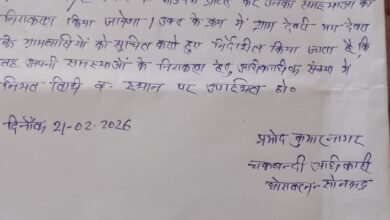 प्राप्त कर उनकी समस्याओं का
निराकरण किया जायेगा। उक्त के क्रम में ग्राम देवरी मय देवरा
के ग्रामवासियों को सूचित करते हुए निर्देशित किया जाता है, कि
वह अपनी समस्याओं के निराकरण हेतु अधिकाधिक संख्या में
नियत तिथि व स्थान पर उपस्थित हो०
दिनाँक 21-02-2026
प्रमोद कुमार नागर
चकबन्दी अधिकारी
घोरावल - सोनभद्र